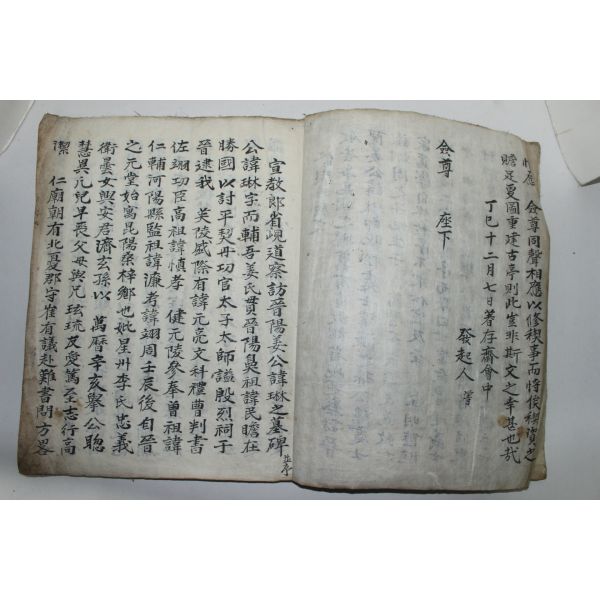 僉尊同聲相應以修稧事而將俟稧資之
贍足更圖重建古亭則此豈非斯文之幸甚也哉
丁巳十二月七日著存齋會中
發起人 等
僉尊 座下
宣教郎省峴道察訪晉陽姜公諱琳之墓碑 並序
公諱琳字而輔吾姜氏貫晉陽鼻祖諱民瞻在
勝國以討平契丹功官太子太師謚殷烈祠于
晉逮我 英陵盛際有諱元亮文科禮曹判書
佐翊功臣高祖諱慎孝 健元陵參奉曾祖諱
仁輔河陽縣監祖諱濂考諱翊周壬辰後自晉
之元堂始寓昆陽桑梓鄉也妣星州李氏忠義
衛曇女與安君濟玄孫以 萬曆辛亥擧公聰
慧異凡兒早喪父母與兄玹琉友愛篤至志行高
潔 仁廟朝有北憂郡守崔有議赴難書問方畧